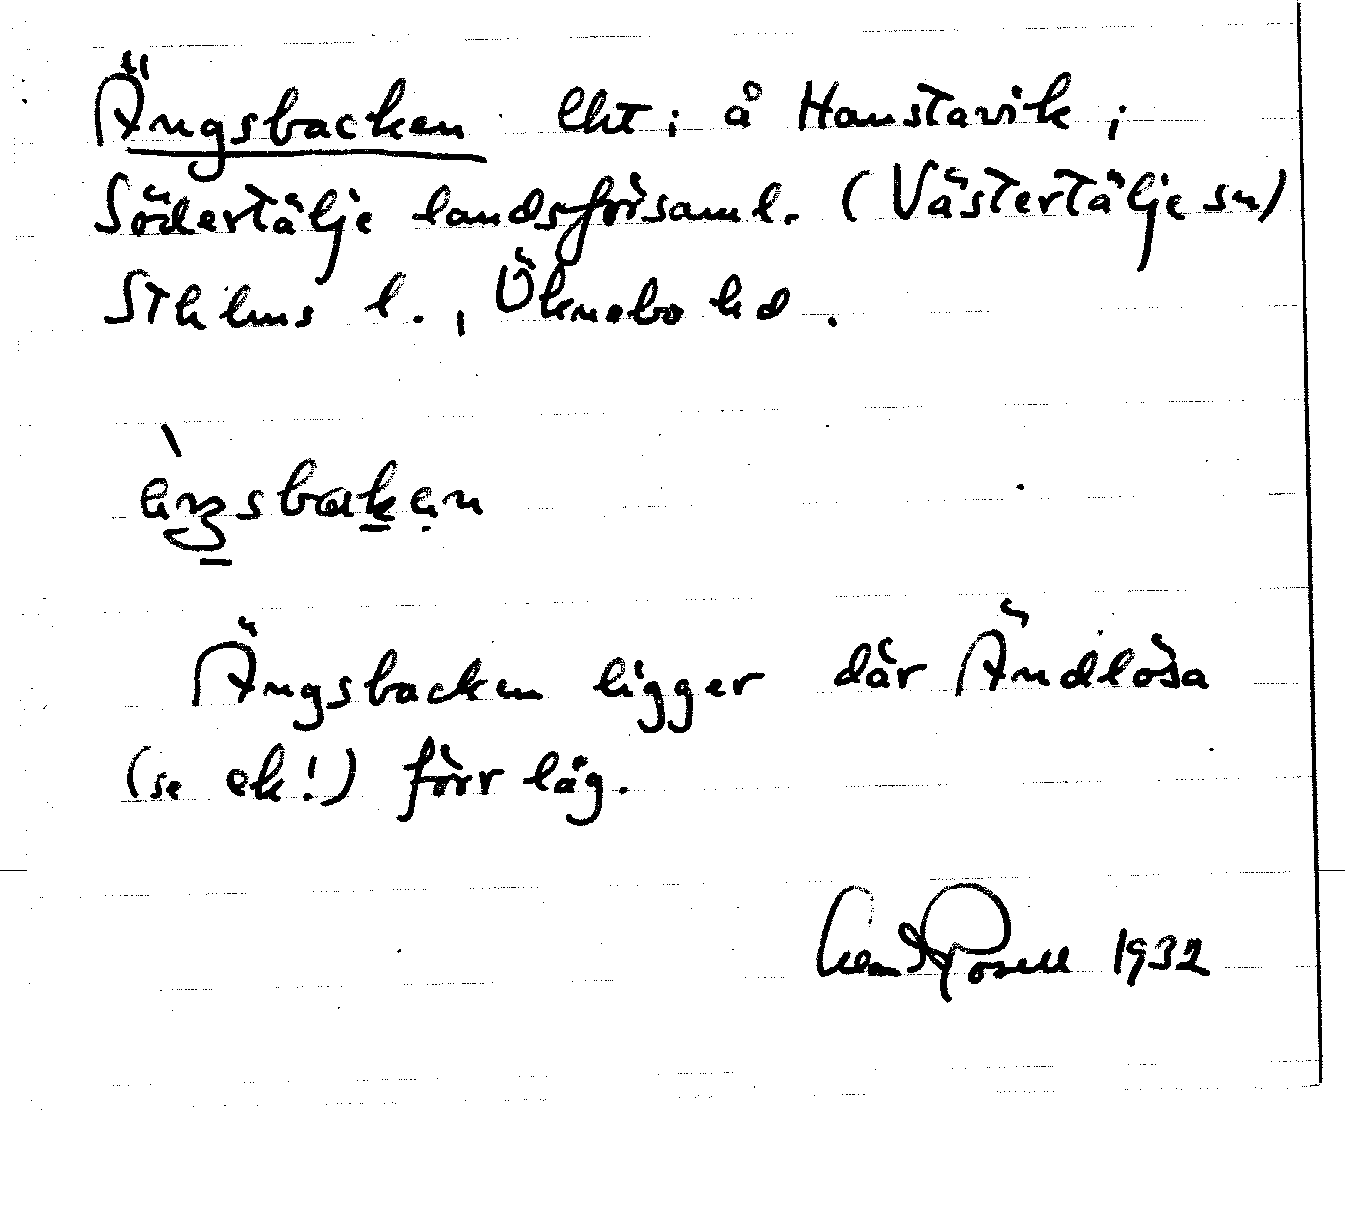 Ängsbacken lht; å Hanstavik,
Södertälje landsförsaml. (Västertälje sn)
Sthlms l., Öknebo hd.
Ängsbacken ligger där Ändlösa
(se ek!) förr låg.
1932